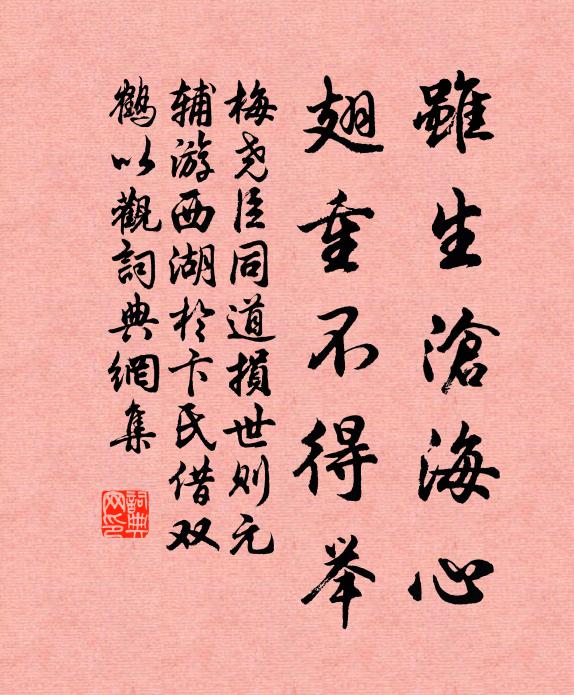 雖生滄海心
翅重不得举
梅尧臣同道損世则元
辅游西湖於卞氏借双
鶴以觀詞典網集
詞典网印